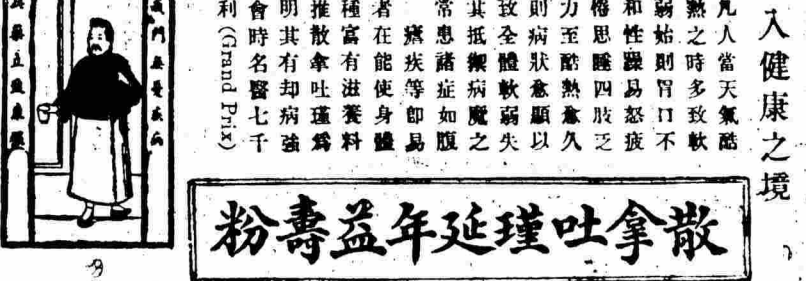 入健康之境
凡人當天氣酷
熱之時多致軟
弱始則胃口不
和性躁易怒疲
倦思睡四肢乏
力至酷熱愈久
則病狀愈顯以
致全體軟弱失
其抵禦病魔之
常患諸症如腹
瘡疾等即易
者在能使身體
種富有滋養料
推散拿吐瑾爲
明其有却病強
會時名醫七千
利(Grand Prix)
散拿吐瑾延年益壽粉
藥立
門 疾病